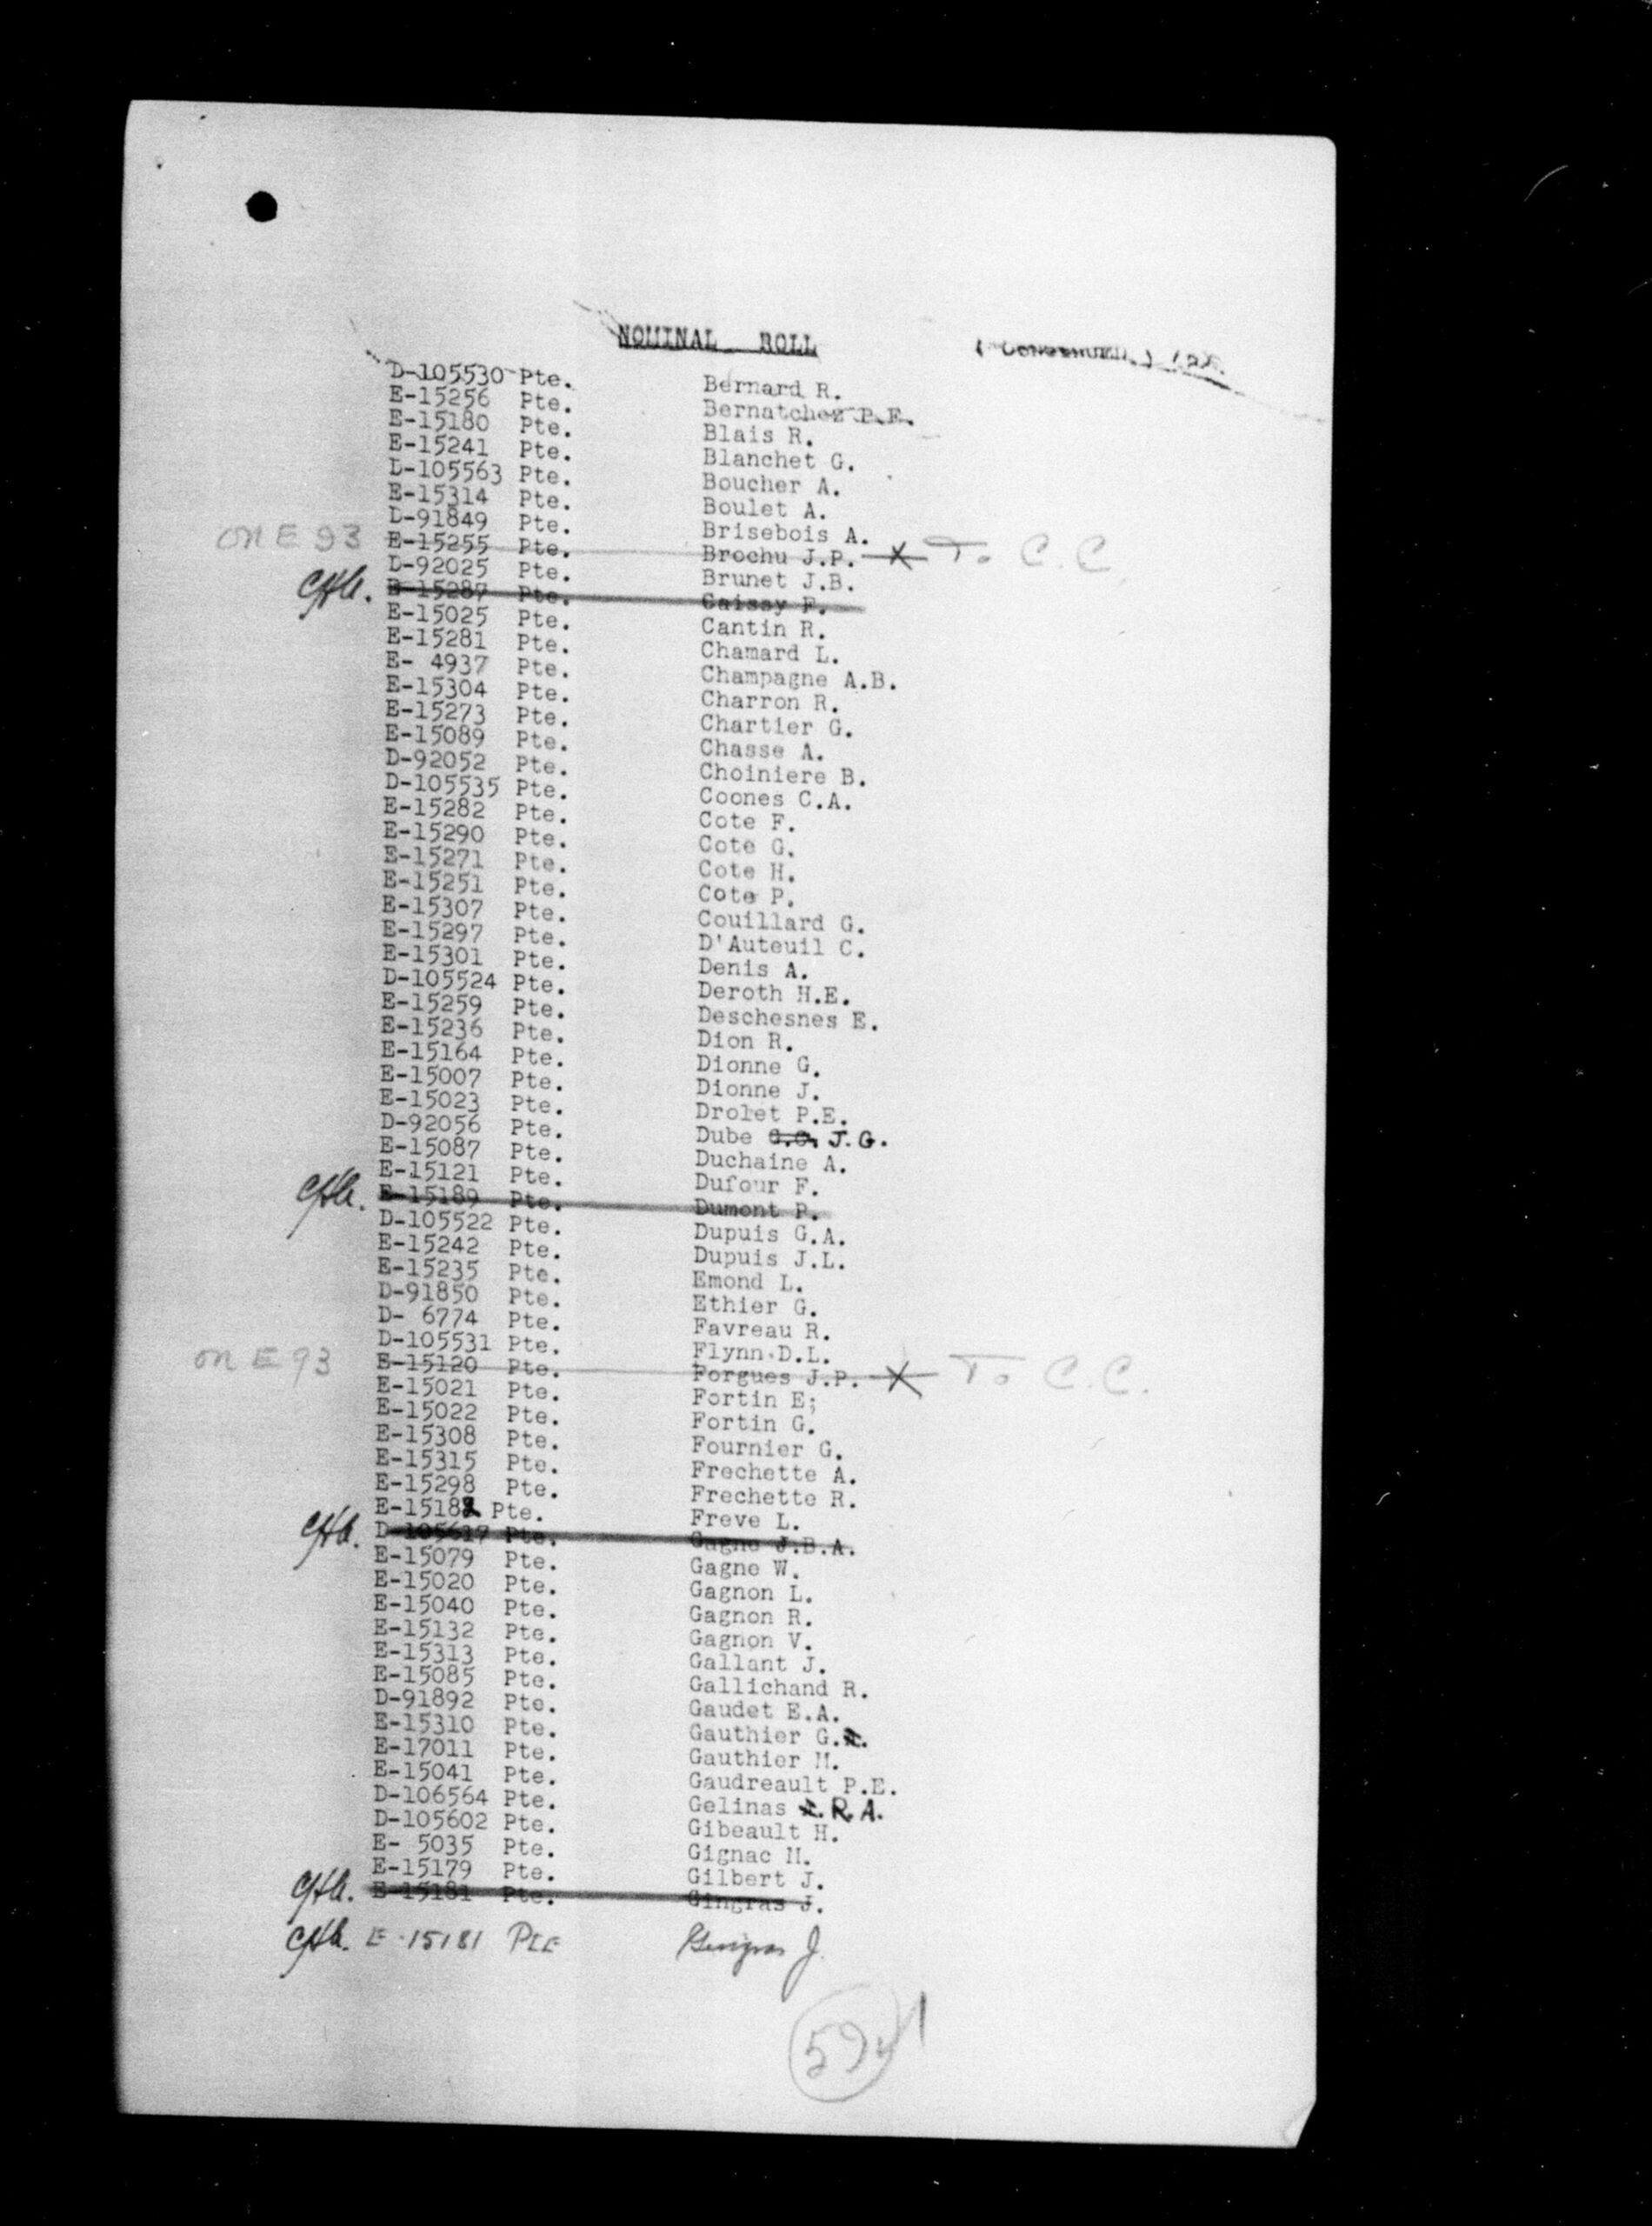 NOMINAL ROLL (CONTINUED)
D-105530 Pte. Bernard R.
E-15256 Pte. Bernatchez P.E.
E-15180 Pte. Blais R.
E-15241 Pte. Blanchet G.
D-105563 Pte. Boucher A.
E-15314 Pte. Boulet A.
D-91849 Pte. Brisebois A.
on E 93 E-15255 Pte. Brochu J.P. X To C.C.
D-92025 Pte. Brunet J.B.
E-15287 Pte. Caissy F.
E-15025 Pte. Cantin R.
E-15281 Pte. Chamard L.
E- 4937 Pte. Champagne A.B.
E-15304 Pte. Charron R.
E-15273 Pte. Chartier G.
E-15089 Pte. Chasse A.
D-92052 Pte. Choiniere B.
D-105535 Pte. Coones C.A.
E-15282 Pte. Cote F.
E-15290 Pte. Cote G.
E-15271 Pte. Cote H.
E-15251 Pte. Cote P.
E-15307 Pte. Couillard G.
E-15297 Pte. D'Auteuil C.
E-15301 Pte. Denis A.
D-105524 Pte. Deroth H.E.
E-15259 Pte. Deschesnes E.
E-15236 Pte. Dion R.
E-15164 Pte. Dionne G.
E-15007 Pte. Dionne J.
E-15023 Pte. Drolet P.E.
D-92056 Pte. Dube J.G.
E-15087 Pte. Duchaine A.
E-15121 Pte. Dufour F.
E-15189 Pte. Dumont P.
D-105522 Pte. Dupuis G.A.
E-15242 Pte. Dupuis J.L.
E-15235 Pte. Emond L.
D-91850 Pte. Ethier G.
D- 6774 Pte. Favreau R.
D-105531 Pte. Flynn D.L.
on E 93 E-15120 Pte. Forgues J.P. X To C.C.
E-15021 Pte. Fortin E;
E-15022 Pte. Fortin G.
E-15308 Pte. Fournier G.
E-15315 Pte. Frechette A.
E-15298 Pte. Frechette R.
E-15182 Pte. Freve L.
D-105617 Pte. Gagne J.B.A.
E-15079 Pte. Gagne W.
E-15020 Pte. Gagnon L.
E-15040 Pte. Gagnon R.
E-15132 Pte. Gagnon V.
E-15313 Pte. Gallant J.
E-15085 Pte. Gallichand R.
D-91892 Pte. Gaudet E.A.
E-15310 Pte. Gauthier G.
E-17011 Pte. Gauthier M.
E-15041 Pte. Gaudreault P.E.
D-106564 Pte. Gelinas R.A.
D-105602 Pte. Gibeault H.
E- 5035 Pte. Gignac M.
E-15179 Pte. Gilbert J.
E-15181 Pte. Gingras J.
E-15181 PTE Gingras J.